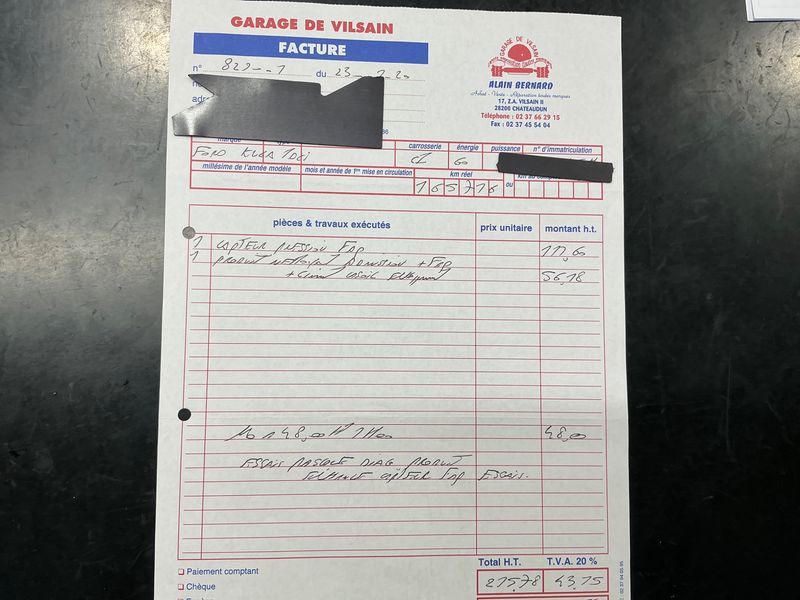 GARAGE DE VILSAIN
FACTURE
GARAGE DE VILSAIN
ALAIN BERNARD
Achat - Vente - Réparation toutes marques
17, Z.A. VILSAIN II
28200 CHATEAUDUN
Téléphone : 02 37 66 29 15
Fax : 02 37 45 54 04
n° du 23
marque type carrosserie énergie puissance n° d'immatriculation
FORD KUGA TDCI CI GO
millésime de l'année modèle mois et année de 1ère mise en circulation km réel ou km au compteur
165716
pièces & travaux exécutés prix unitaire montant h.t.
1 CAPTEUR PRESSION FAP 111,60
1 PRODUIT NETTOYANT ADMISSION + FAP
+ GASOIL 56,18
MO 1 48,00 HT 1H00 48,00
ESSAIS PASSAGE DIAG PRODUIT
CAPTEUR FAP ESSAIS.
Total H.T. T.V.A. 20 %
215,78 43,15
Paiement comptant
Chèque